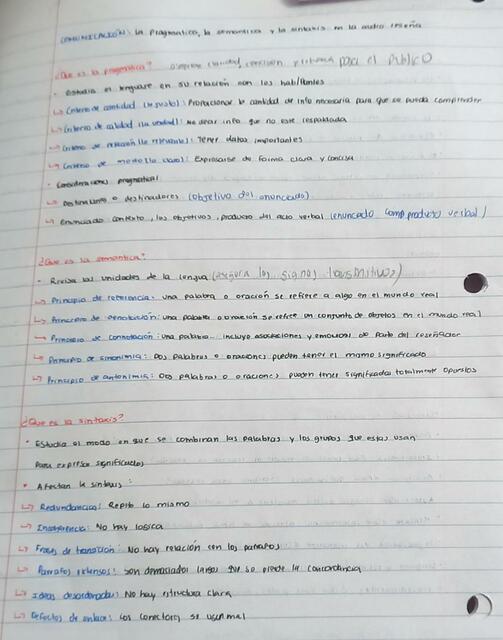 COMUNICACIÓN: La Pragmatica, la semantica y la sintaxis en la audio reseña
¿Que es la pragmatica? claridad, para el PUBLICO
• Estudia el lenguaje en su relación con los hablantes
↳ Criterio de cantidad (lo justo): Proporcionar la cantidad de info necesaria para que se pueda comprender
↳ Criterio de calidad (la verdad): No dar info que no este respaldada
↳ Criterio de relación (lo relevante): Tener datos importantes
↳ Criterio de modo (lo claro): Expresarse de forma clara y concisa
• Consideraciones pragmatica:
↳ Destinatario o destinadores (objetivo del enunciado)
↳ Enunciado contexto, los objetivos, producto del acto verbal (enuncado como producto verbal)
¿Que es la semantica?
• Revisa las unidades de la lengua (asegura los signos)
↳ Principio de referencia: una palabra o oración se refiere a algo en el mundo real
↳ Principio de denotación: una palabra o oración se refire un conjunto de objetos en el mundo real
↳ Principio de connotación: una palabra incluye asociaciones y emocional de parte del reseñador
↳ Principio de sinonimia: Dos palabras o oraciones pueden tener el mismo significado
↳ Principio de antonimia: Dos palabras o oraciones pueden tener significados totalmente opuestos
¿Que es la sintaxis?
• Estudia el modo en que se combinan las palabras y los grupos que estas usan
para expresar significados
• Afectan la sintaxis:
↳ Redundancias: Repito lo mismo
↳ Incoherencia: No hay logica
↳ Frases de transición: No hay relación con los parrafos
↳ Parrafos extensos: son demasiados largos que se pierde la concordancia
↳ Ideas desordenadas: No hay estructura clara
↳ Defectos de enlace: Los conectores se usan mal